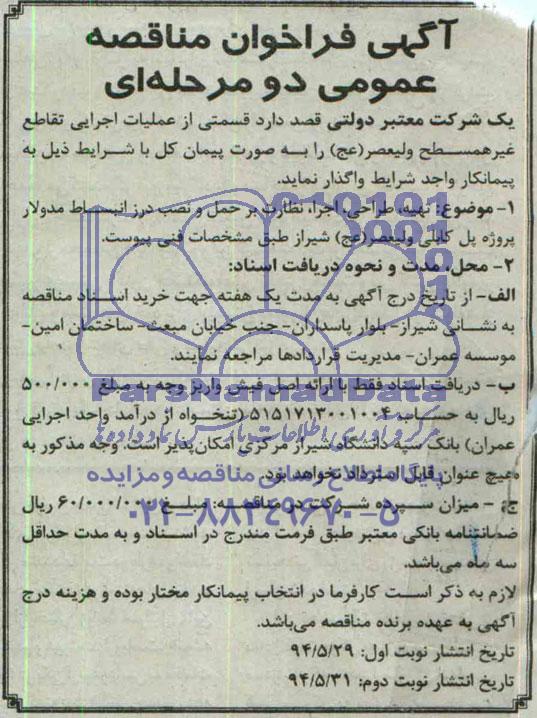 آگهی فراخوان مناقصه
عمومی دو مرحله‌ای
یک شرکت معتبر دولتی قصد دارد قسمتی از عملیات اجرایی تقاطع
غیرهمسطح ولیعصر(عج) را به صورت پیمان کل با شرایط ذیل به
پیمانکار واجد شرایط واگذار نماید.
۱- موضوع: تهیه، طراحی، اجرا، نظارت بر حمل و نصب درز انبساط مدولار
پروژه پل کابلی ولیعصر(عج) شیراز طبق مشخصات فنی پیوست.
۲- محل، مدت و نحوه دریافت اسناد:
الف- از تاریخ درج آگهی به مدت یک هفته جهت خرید اسناد مناقصه
به نشانی شیراز- بلوار پاسداران- جنب خیابان مبعث- ساختمان امین-
موسسه عمران- مدیریت قراردادها مراجعه نمایند.
ب- دریافت اسناد فقط با ارائه اصل فیش واریز وجه به مبلغ ۵۰۰/۰۰۰
ParsNamadData
ریال به حساب ۵۱۵۱۷۱۳۰۰۱۰۰۴ (تنخواه از درآمد واحد اجرایی
مرکز فرآوری اطلاعات پارس نماد داده‌ها
عمران) بانک سپه دانشگاه شیراز مرکزی امکان‌پذیر است. وجه مذکور به
هیچ عنوان قابل استرداد نخواهد بود.
پایگاه اطلاع رسانی مناقصه و مزایده
ج- میزان سپرده شرکت در مناقصه: مبلغ ۶۰/۰۰۰/۰۰۰ ریال
۰۲۱-۸۸۳۴۹۶۷۰-۵
ضمانتنامه بانکی معتبر طبق فرمت مندرج در اسناد و به مدت حداقل
سه ماه می‌باشد.
لازم به ذکر است کارفرما در انتخاب پیمانکار مختار بوده و هزینه درج
آگهی به عهده برنده مناقصه می‌باشد.
تاریخ انتشار نوبت اول: ۹۴/۵/۲۹
تاریخ انتشار نوبت دوم: ۹۴/۵/۳۱